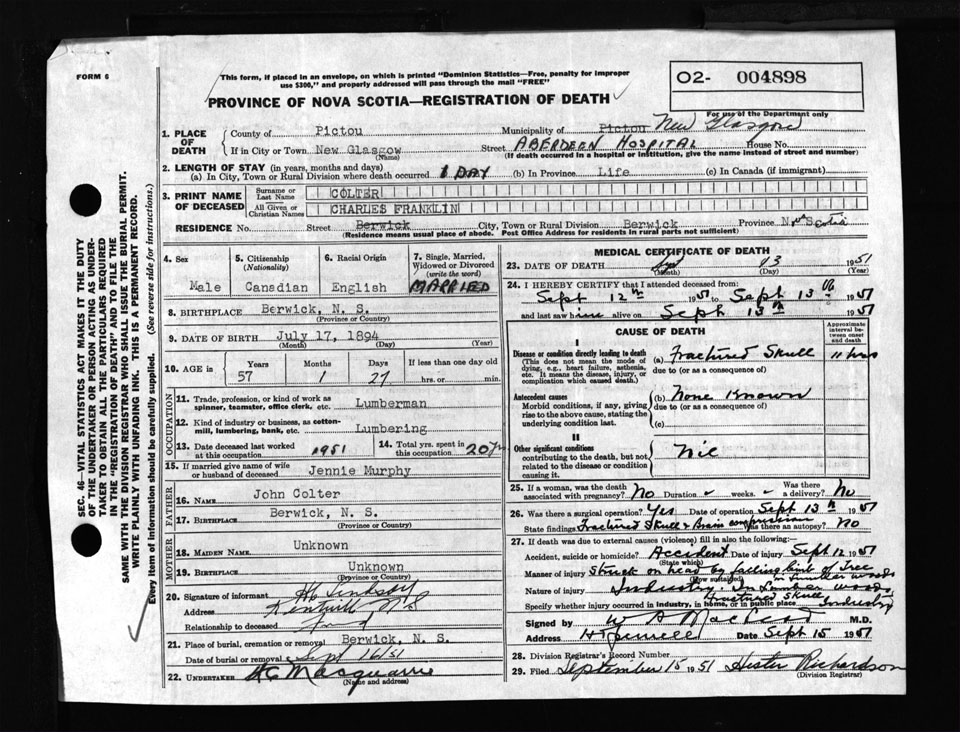 FORM 6
This form, if placed in an envelope, on which is printed "Dominion Statistics—Free, penalty for improper
use $300," and properly addressed will pass through the mail "FREE"
O2- 004898
For use of the Department only
PROVINCE OF NOVA SCOTIA—REGISTRATION OF DEATH
1. PLACE OF DEATH
County of Pictou Municipality of Pictou New Glasgow
If in City or Town New Glasgow (Name) Street ABERDEEN HOSPITAL House No.
(If death occurred in a hospital or institution, give the name instead of street and number)
2. LENGTH OF STAY (in years, months and days)
(a) In City, Town or Rural Division where death occurred 1 DAY (b) In Province Life (c) In Canada (if immigrant)
3. PRINT NAME OF DECEASED
Surname or Last Name COLTER
All Given or Christian Names CHARLES FRANKLIN
RESIDENCE No. Street Berwick City, Town or Rural Division Berwick Province Nova Scotia
(Residence means usual place of abode. Post Office Address for residents in rural parts not sufficient)
4. Sex Male
5. Citizenship (Nationality) Canadian
6. Racial Origin English
7. Single, Married, Widowed or Divorced (write the word) MARRIED
8. BIRTHPLACE Berwick, N. S.
(Province or Country)
9. DATE OF BIRTH July 17, 1894
(Month) (Day) (Year)
10. AGE in Years 57 Months 1 Days 27 If less than one day old hrs. or min.
OCCUPATION
11. Trade, profession, or kind of work as spinner, teamster, office clerk, etc. Lumberman
12. Kind of industry or business, as cotton-mill, lumbering, bank, etc. Lumbering
13. Date deceased last worked at this occupation 1951
14. Total yrs. spent in this occupation 20 Yrs
15. If married give name of wife or husband of deceased Jennie Murphy
FATHER
16. NAME John Colter
17. BIRTHPLACE Berwick, N. S.
(Province or Country)
MOTHER
18. MAIDEN NAME Unknown
19. BIRTHPLACE Unknown
(Province or Country)
20. Signature of informant HC Lindsay
Address Kentville N.S.
Relationship to deceased
21. Place of burial, cremation or removal Berwick, N. S.
Date of burial or removal Sept 16/51
22. UNDERTAKER HC Macquarrie
(Name and address)
MEDICAL CERTIFICATE OF DEATH
23. DATE OF DEATH Sept 13 1951
(Month) (Day) (Year)
24. I HEREBY CERTIFY that I attended deceased from:
Sept 12th 1951 to Sept 13th 1951
and last saw him alive on Sept 13th 1951
CAUSE OF DEATH
Approximate interval between onset and death
I
Disease or condition directly leading to death (a) Fractured Skull 11 hrs
(This does not mean the mode of dying, e.g., heart failure, asthenia, etc. It means the disease, injury, or complication which caused death.)
due to (or as a consequence of)
Antecedent causes (b) None Known
Morbid conditions, if any, giving rise to the above cause, stating the underlying condition last.
due to (or as a consequence of)
(c)
II
Other significant conditions Nil
contributing to the death, but not related to the disease or condition causing it.
25. If a woman, was the death associated with pregnancy? No Duration weeks. Was there a delivery? No
26. Was there a surgical operation? Yes Date of operation Sept 13th 1951
State findings Fractured Skull & Brain compression Was there an autopsy? No
27. If death was due to external causes (violence) fill in also the following:
Accident, suicide or homicide? Accident Date of injury Sept 12 1951
(State which)
Manner of injury Struck on head by falling limb of Tree
(How sustained) in lumber woods
Nature of injury Industry In Lumber woods
Fractured Skull
Specify whether injury occurred in industry, in home, or in public place Industry
Signed by M.D.
Address Date Sept 15 1951
28. Division Registrar's Record Number
29. Filed September 15 1951 Hester Richardson
(Division Registrar)
SEC. 46—VITAL STATISTICS ACT MAKES IT THE DUTY
OF THE UNDERTAKER OR PERSON ACTING AS UNDER-
TAKER TO OBTAIN ALL THE PARTICULARS REQUIRED
IN THE "REGISTRATION OF DEATH" AND TO FILE THE
SAME WITH THE DIVISION REGISTRAR WHO SHALL ISSUE THE BURIAL PERMIT.
WRITE PLAINLY WITH UNFADING INK. THIS IS A PERMANENT RECORD.
Every item of information should be carefully supplied. (See reverse side for instructions.)